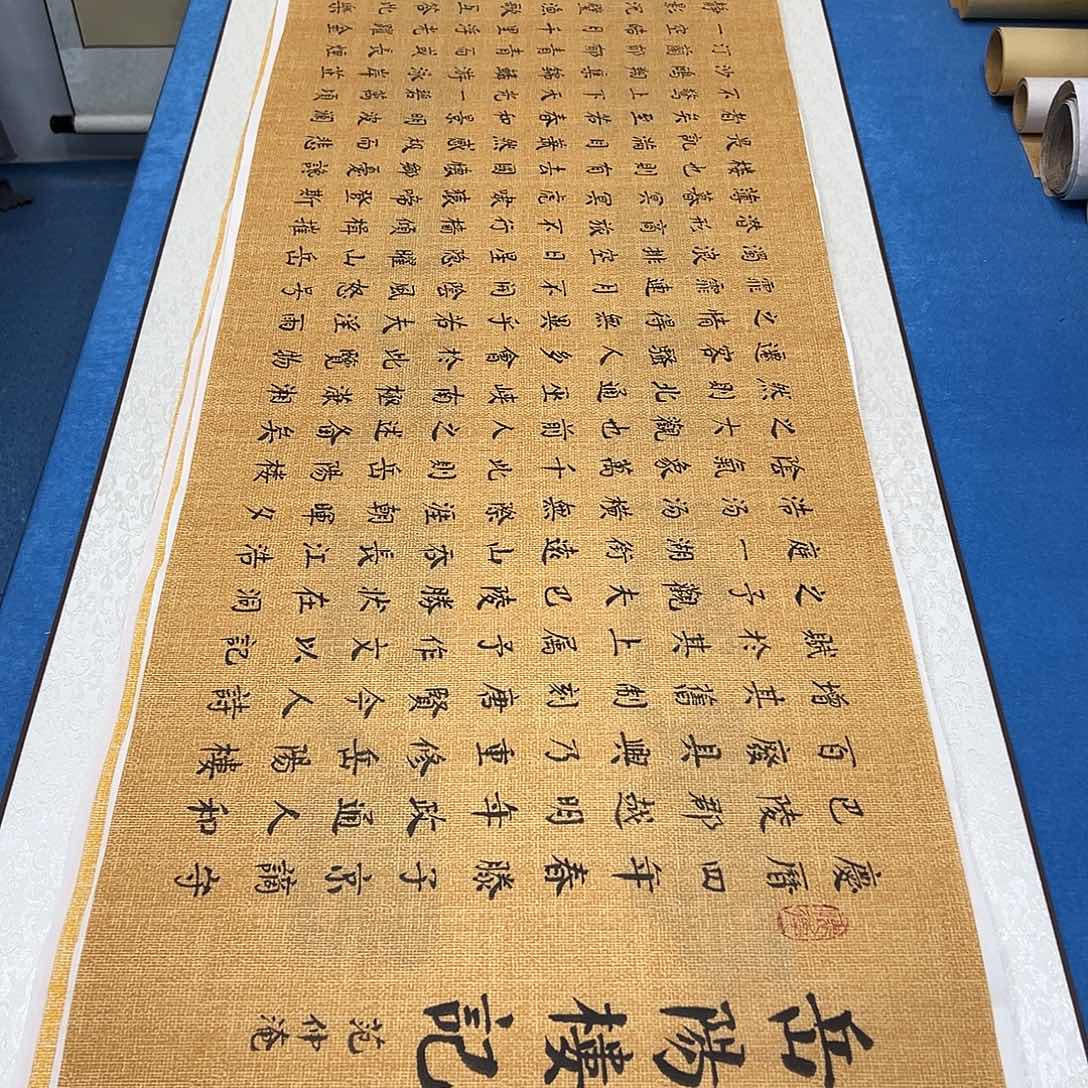 岳陽樓記
范仲淹
慶曆四年春滕子京謫守
巴陵郡越明年政通人和
百廢具興乃重修岳陽樓
增其舊制刻唐賢今人詩
賦於其上属予作文以記
之予觀夫巴陵勝狀在洞
庭一湖銜遠山吞長江浩
浩湯湯橫無際涯朝暉夕
陰氣象萬千此則岳陽楼
之大觀也前人之述备矣
然則北通巫峡南極瀟湘
遷客騷人多會於此覽物
之情得無異乎若夫淫雨
霏霏連月不開陰風怒号
濁浪排空日星隐曜山岳
潜形商旅不行檣傾楫摧
薄暮冥冥虎嘯猿啼登斯
楼也則有去國懷鄉憂讒
畏譏滿目蕭然感極而悲
者矣至若春和景明波瀾
不驚上下天光一碧萬頃
沙鷗翔集錦鱗游泳岸芷
汀蘭郁郁青青而或長煙
一空皓月千里浮光躍金
靜影沉璧漁歌互答此樂